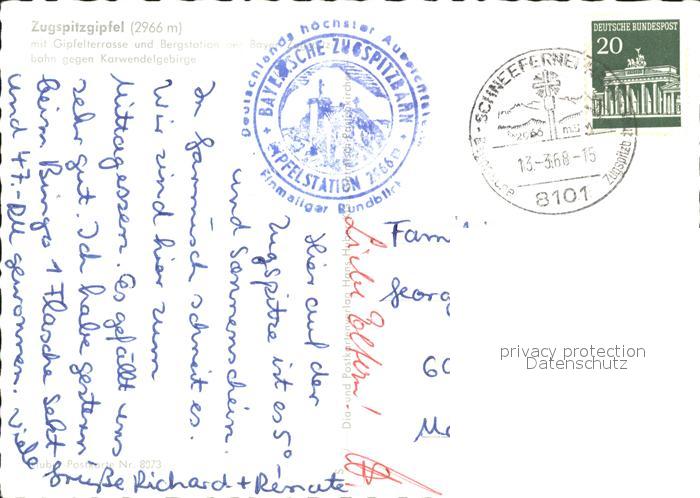 Zugspitzgipfel (2966 m)
mit Gipfelterrasse und Bergstation der Bay.
bahn gegen Karwendelgebirge
Deutschlands höchster Aussichts
BAYERISCHE ZUGSPITZBAHN
GIPFELSTATION 2966 m
Einmaliger Rundblick
SCHNEEFERNER
2966 m
13.-3.68-15
Zugspitzb
8101
DEUTSCHE BUNDESPOST
20
Liebe Eltern!
Hier auf der
Zugspitze ist es 5°
und Sonnenschein.
In Garmisch schneit es.
Wir sind hier zum
Mittagessen. Es gefällt uns
sehr gut. Ich habe gestern
beim Bingo 1 Flasche Sekt
und 47,- DM gewonnen. Viele
Grüße Richard + Renate
Fam
Georg
60
Postkarte Nr. 8073
privacy protection
Datenschutz